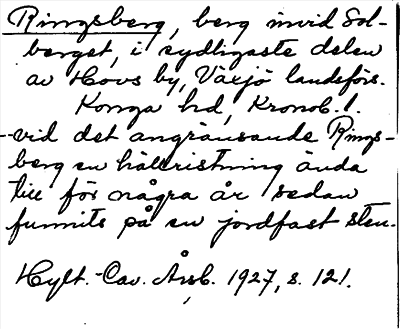 Ringsberg, berg invid Sol-
berget, i sydligaste delen
av Hovs by, Växjö landsförs.
Konga hd, Kronob. l.
-vid det angränsande Rings-
berg en hällristning ända
till för några år sedan
funnits på en jordfast sten.
Hylt.-Cav. Årsb. 1927, s. 121.